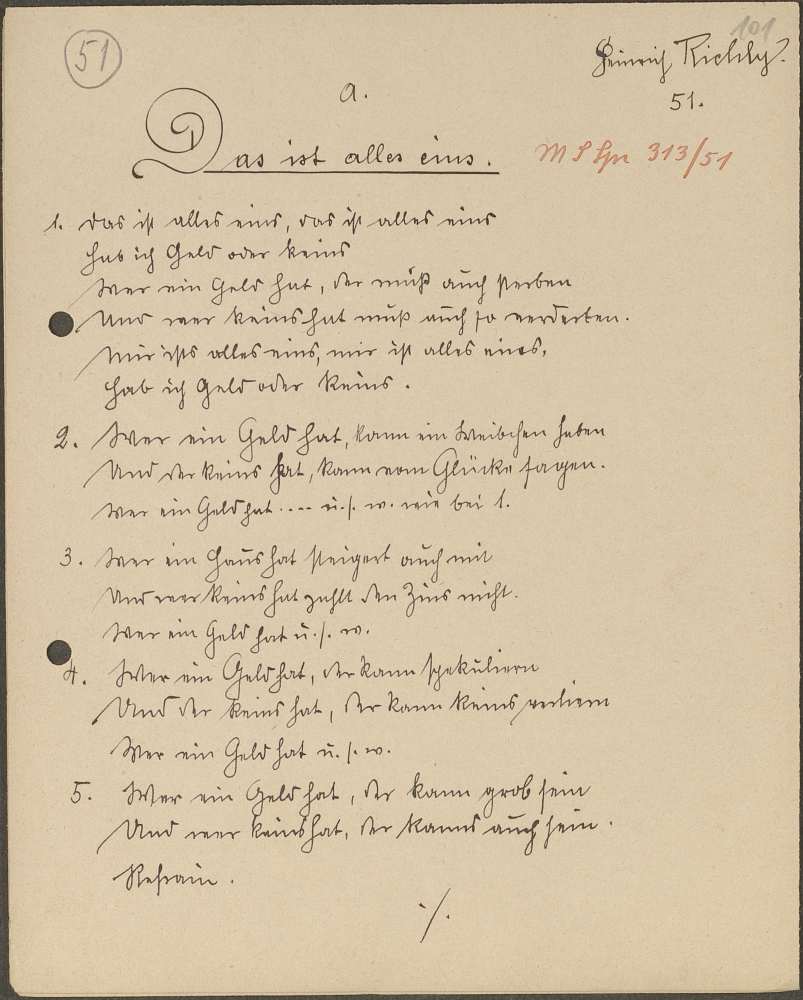 101
51
Heinrich Richly.
51.
a.
Das ist alles eins.
313/51
1. Das ist alles eins, das ist alles eins
Hab ich Geld oder keins
Wer ein Geld hat, der muß auch sterben
Und wer keins hat muß auch so verderben.
Mir ists alles eins, mir ist alles eines,
Hab ich Geld oder keins.
2. Wer ein Geld hat, kann ein Weibchen haben
Und der keins hat, kann vom Glücke sagen.
Wer ein Geld hat .... u. s. w. wie bei 1.
3. Wer ein Haus hat steigert auch mit
Und wer keins hat zahlt den Zins nicht.
Wer ein Geld hat u. s. w.
4. Wer ein Geld hat, der kann spekuliern
Und der keins hat, der kann keins verliern
Wer ein Geld hat u. s. w.
5. Wer ein Geld hat, der kann grob sein
Und wer keins hat, der kanns auch sein.
Refrain.
./.